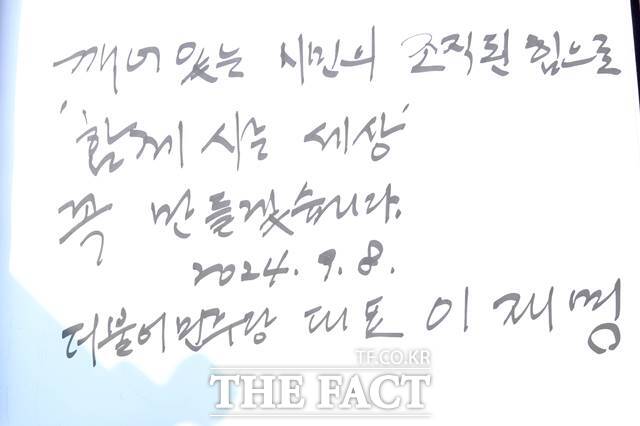 깨어있는 시민의 조직된 힘으로
'함께 사는 세상'
꼭 만들겠습니다.
2024. 9. 8.
더불어민주당 대표 이재명
TF.CO.KR
THE FACT